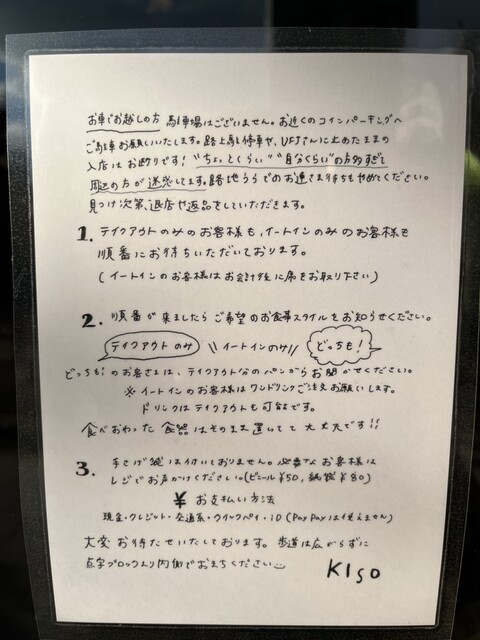 お車でお越しの方 駐車場はございません。お近くのコインパーキングへ
ご駐車お願いいたします。路上駐停車や、UFJさんに止めたままの
入店はお断りです! "ちょっとくらい" "自分くらい"の方多すぎて
周辺の方が迷惑してます。路地うらでのお連さま待ちもやめてください。
見つけ次第、退店や返品をしていただきます。
1. テイクアウトのみのお客様も、イートインのみのお客様も
順番にお待ちいただいております。
(イートインのお客様はお会計後に席をお取り下さい)
2. 順番が来ましたらご希望のお食事スタイルをお知らせください。
テイクアウトのみ \\イートインのみ// どっちも!
どっちも!のお客さまは、テイクアウト分のパンからお聞かせください。
※イートインのお客様はワンドリンクご注文お願いします。
ドリンクはテイクアウトも可能です。
食べおわった食器はそのまま置いてて大丈夫です!!
3. 手さげ袋は付いておりません。必要なお客様は
レジでお声かけください。(ビニール¥50, 紙袋¥80)
¥ お支払い方法
現金・クレジット・交通系・クイックペイ・iD (PayPayは使えません)
大変お待たせいたしております。歩道は広がらずに
点字ブロックより内側でおまちください
KISO